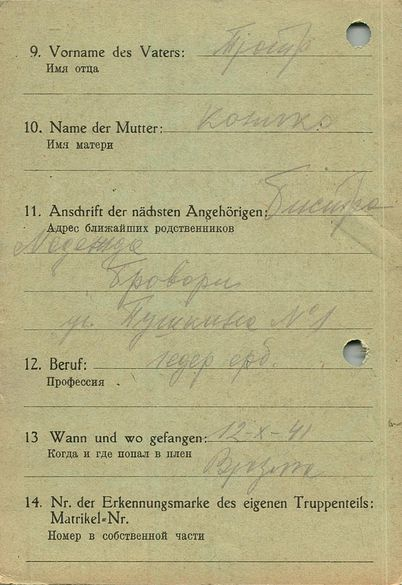 9. Vorname des Vaters:
Имя отца
10. Name der Mutter:
Имя матери
11. Anschrift der nächsten Angehörigen:
Адрес ближайших родственников
Надежда
Бровари
ул. Пушкина №1
12. Beruf:
Профессия
13 Wann und wo gefangen: 12-X-41
Когда и где попал в плен
Вязма
14. Nr. der Erkennungsmarke des eigenen Truppenteils:
Matrikel-Nr.
Номер в собственной части